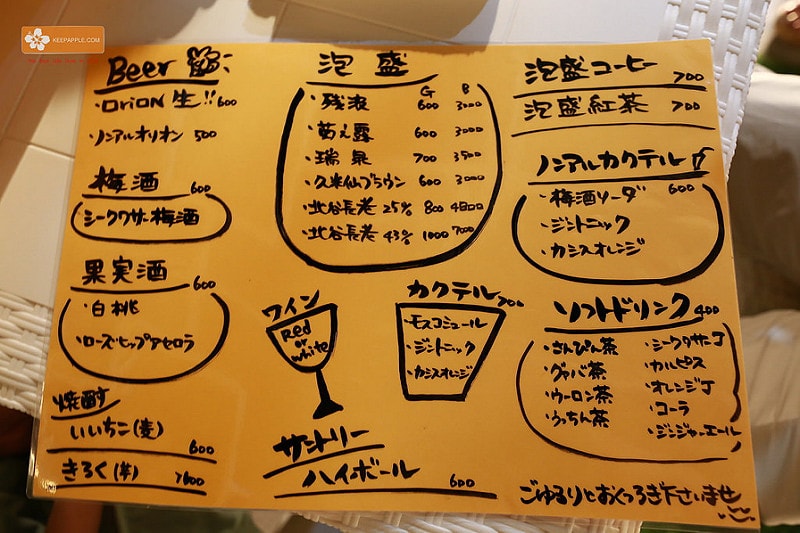 KEEPAPPLE.COM
Beer
・Orion 生!! 600
・ノンアルオリオン 500
梅酒 600
シークワサー梅酒
果実酒 600
・白桃
・ローズヒップアセロラ
焼酎
いいちこ(麦) 600
きろく(芋)
泡盛
G B
・残波 600 3000
・菊之露 600 3000
・瑞泉 700 3500
・久米仙ブラウン 600 3000
・北谷長老 25% 800
・北谷長老 43% 1000 7000
ワイン
Red
or
white
カクテル 700
・モスコミュール
・ジントニック
・カシスオレンジ
サントリー
ハイボール 600
泡盛コーヒー 700
泡盛紅茶 700
ノンアルカクテル 600
・梅酒ソーダ
・ジントニック
・カシスオレンジ
ソフトドリンク 400
・さんぴん茶
・グァバ茶
・ウーロン茶
・うっちん茶
・シークワサーJ
・カルピス
・オレンジJ
・コーラ
・ジンジャーエール
ごゆるりとおくつろぎ下さいませ